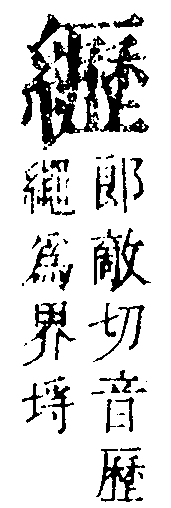 郎敵切音歷
繩爲界埒